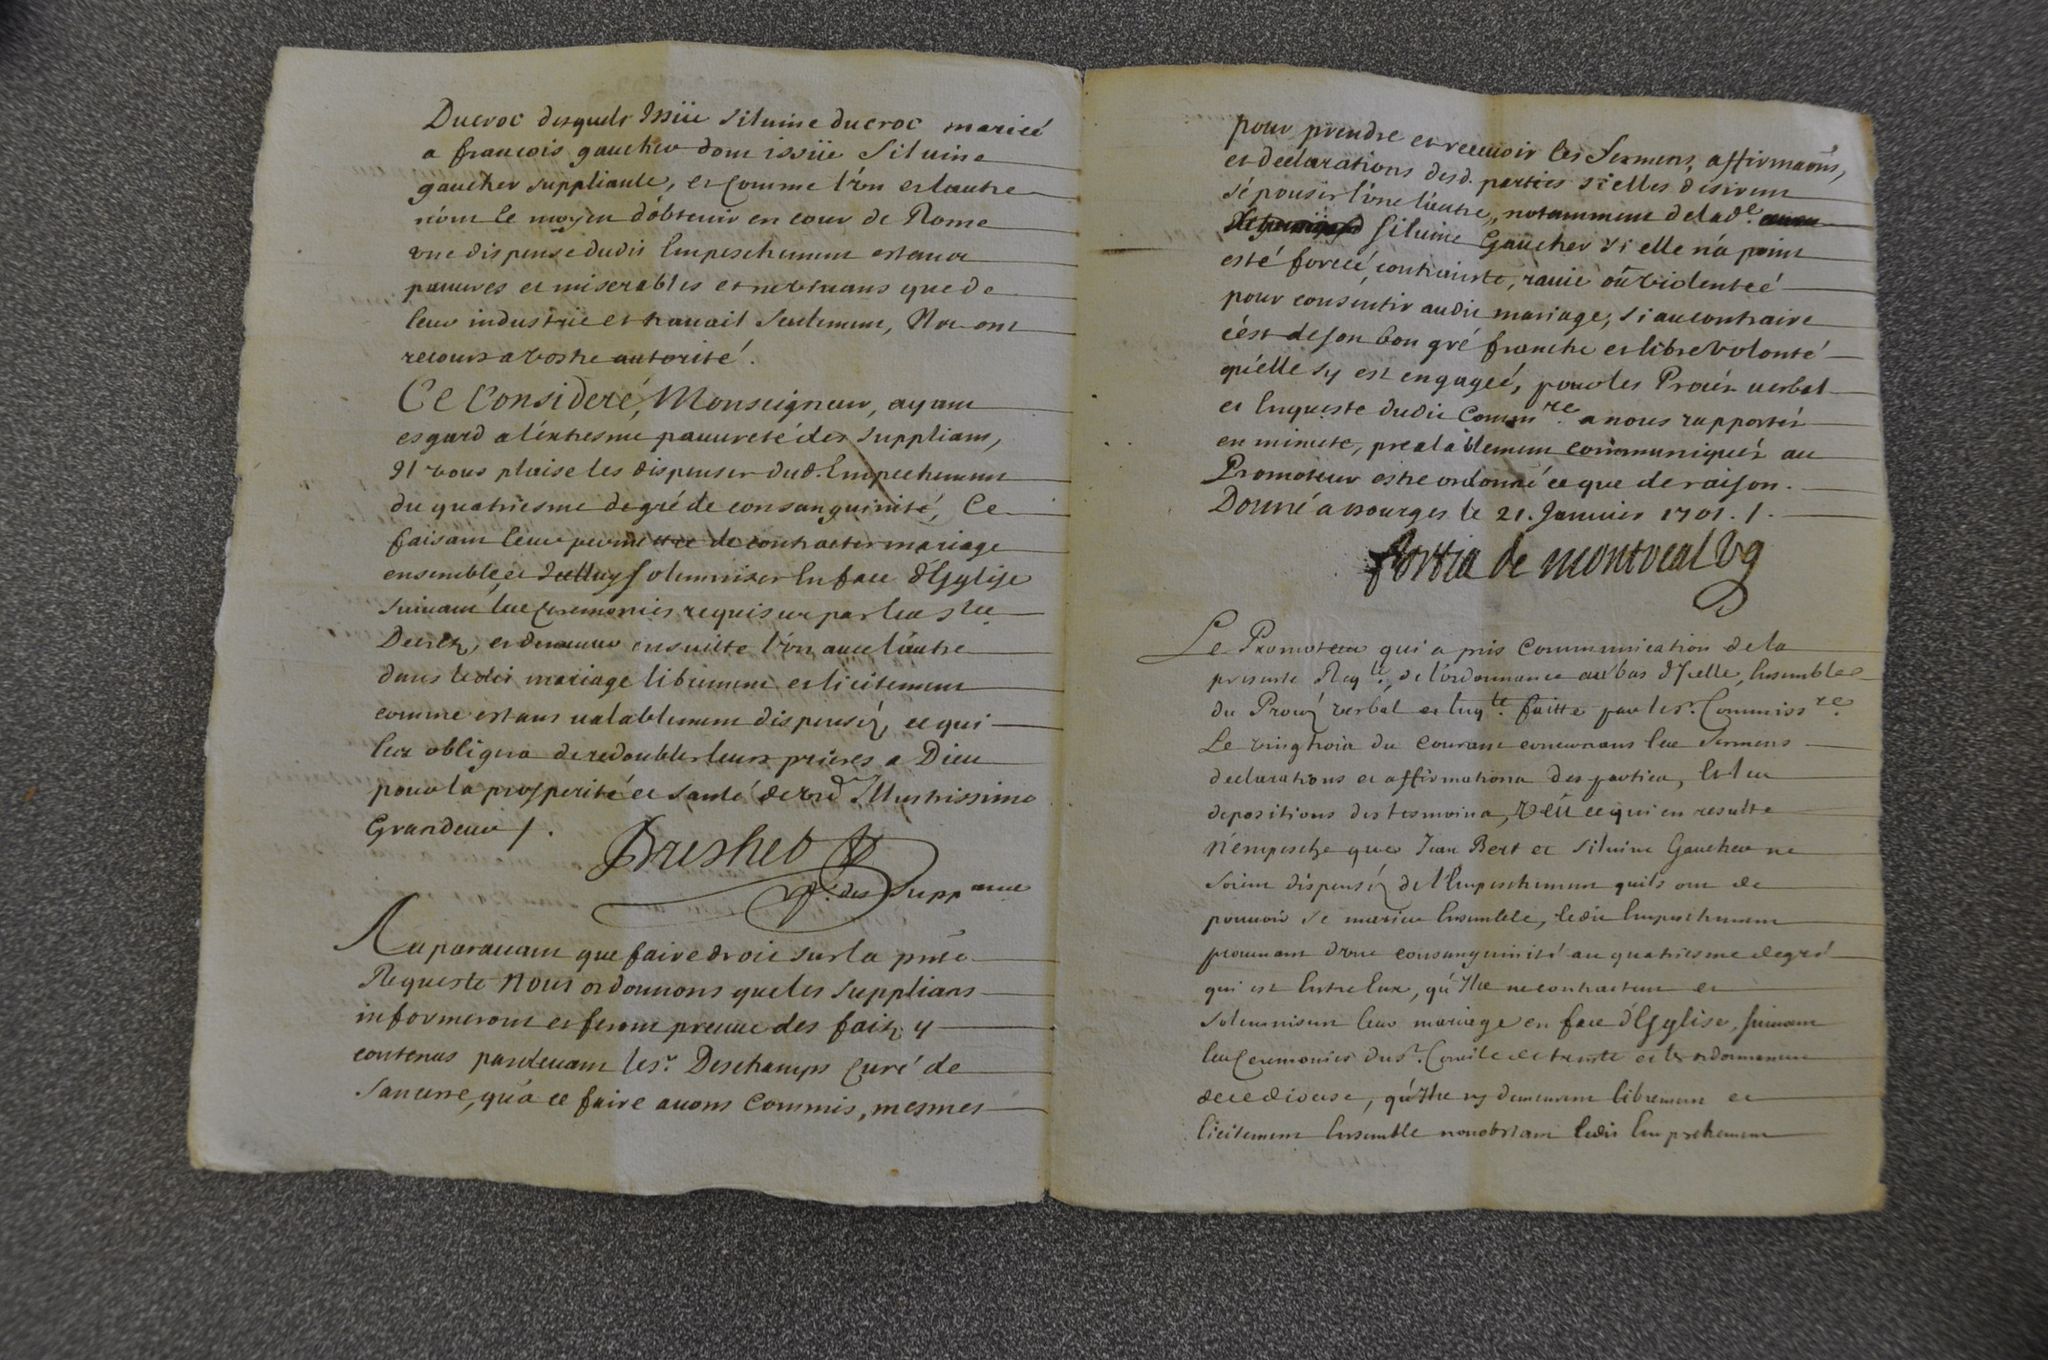 Ducroc desquels Issüe Siluine ducroc mariée
a francois gaucher dont issüe Siluine
gaucher suppliante, et Comme l'un et lautre
n'ont le moyen d'obtenir en cour de Rome
une dispense dudit Empeschement estant
pauures et miserables et ne viuans que de
leur industrie et trauail Seulement, Ilz ont
recours a vostre autorité.
Ce Consideré, Monseigneur, ayant
esgard a l'extresme pauureté des supplians,
Il vous plaise les dispenser dud. Empechement
du quatriesme degré de consanguinité, Ce
faisant leur permettre de contracter mariage
ensemble, et Icelluy solemniser En face d'Esglise
suiuant les Ceremonies requises par les Stz
Decretz, et demeurer ensuitte l'un auec lautre
dans ledit mariage librement et licitement
comme estans ualablement dispensez, ce qui
les obligera de redoubler leurs prieres a Dieu
pour la prosperité et santé de vre Illustrissime
Grandeur /.
Brishet
Pr. des Suppans
Auparauant que faire droit sur la pnte
Requeste Nous ordonnons que les supplians
informeront et feront preuue des faitz y
contenus pardeuant le sr. Deschamps Curé de
Sancerre, qu'a ce faire auons Commis, mesmes
pour prendre et receuoir les Sermens, affirmaõns,
et declarations desd. parties si elles desirent
s'épouser l'une l'autre, notamment de lade.
Siluine Gaucher si elle n'a point
esté forcée, contrainte, rauie ou violenteé
pour consentir audit mariage, si au contraire
c'est de son bon gré franche et libre volonté
qu'elle sy est engageé, pour les Procés uerbal
et Enqueste dudit Commre. a nous rapportés
en minute, prealablement communiqués au
Promoteur estre ordonné ce que de raison.
Donné a Bourges le 21. Januier 1701. /.
fortia de montreal Vg
Le Promoteur qui a pris Communication de la
presente Reqte., de l'ordonnance au bas d'Icelle, Ensemble
du Procez verbal et Enqte. faitte par le sr. Commissre.
Le vingtrois du Courant contenans les Sermens
declarations et affirmations des parties, Et les
depositions des tesmoins, Veü ce qui en resulte
N'empesche que Jean Bert et Siluine Gaucher ne
soient dispensez de l'Empeschement quils ont de
pouuoir se marier Ensemble, ledit Empeschement
prouenant d'une consanguinité au quatriesme degré
qui est Entre Eux, qu'Ilz ne contractent et
solemnisent leur mariage en face d'Esglise, suiuant
les Ceremonies du St. Concile de trente et les ordonnances
de ce diocese, qu'Ilz ny demeurent librement et
licitement Ensemble nonobstant ledit Empechement